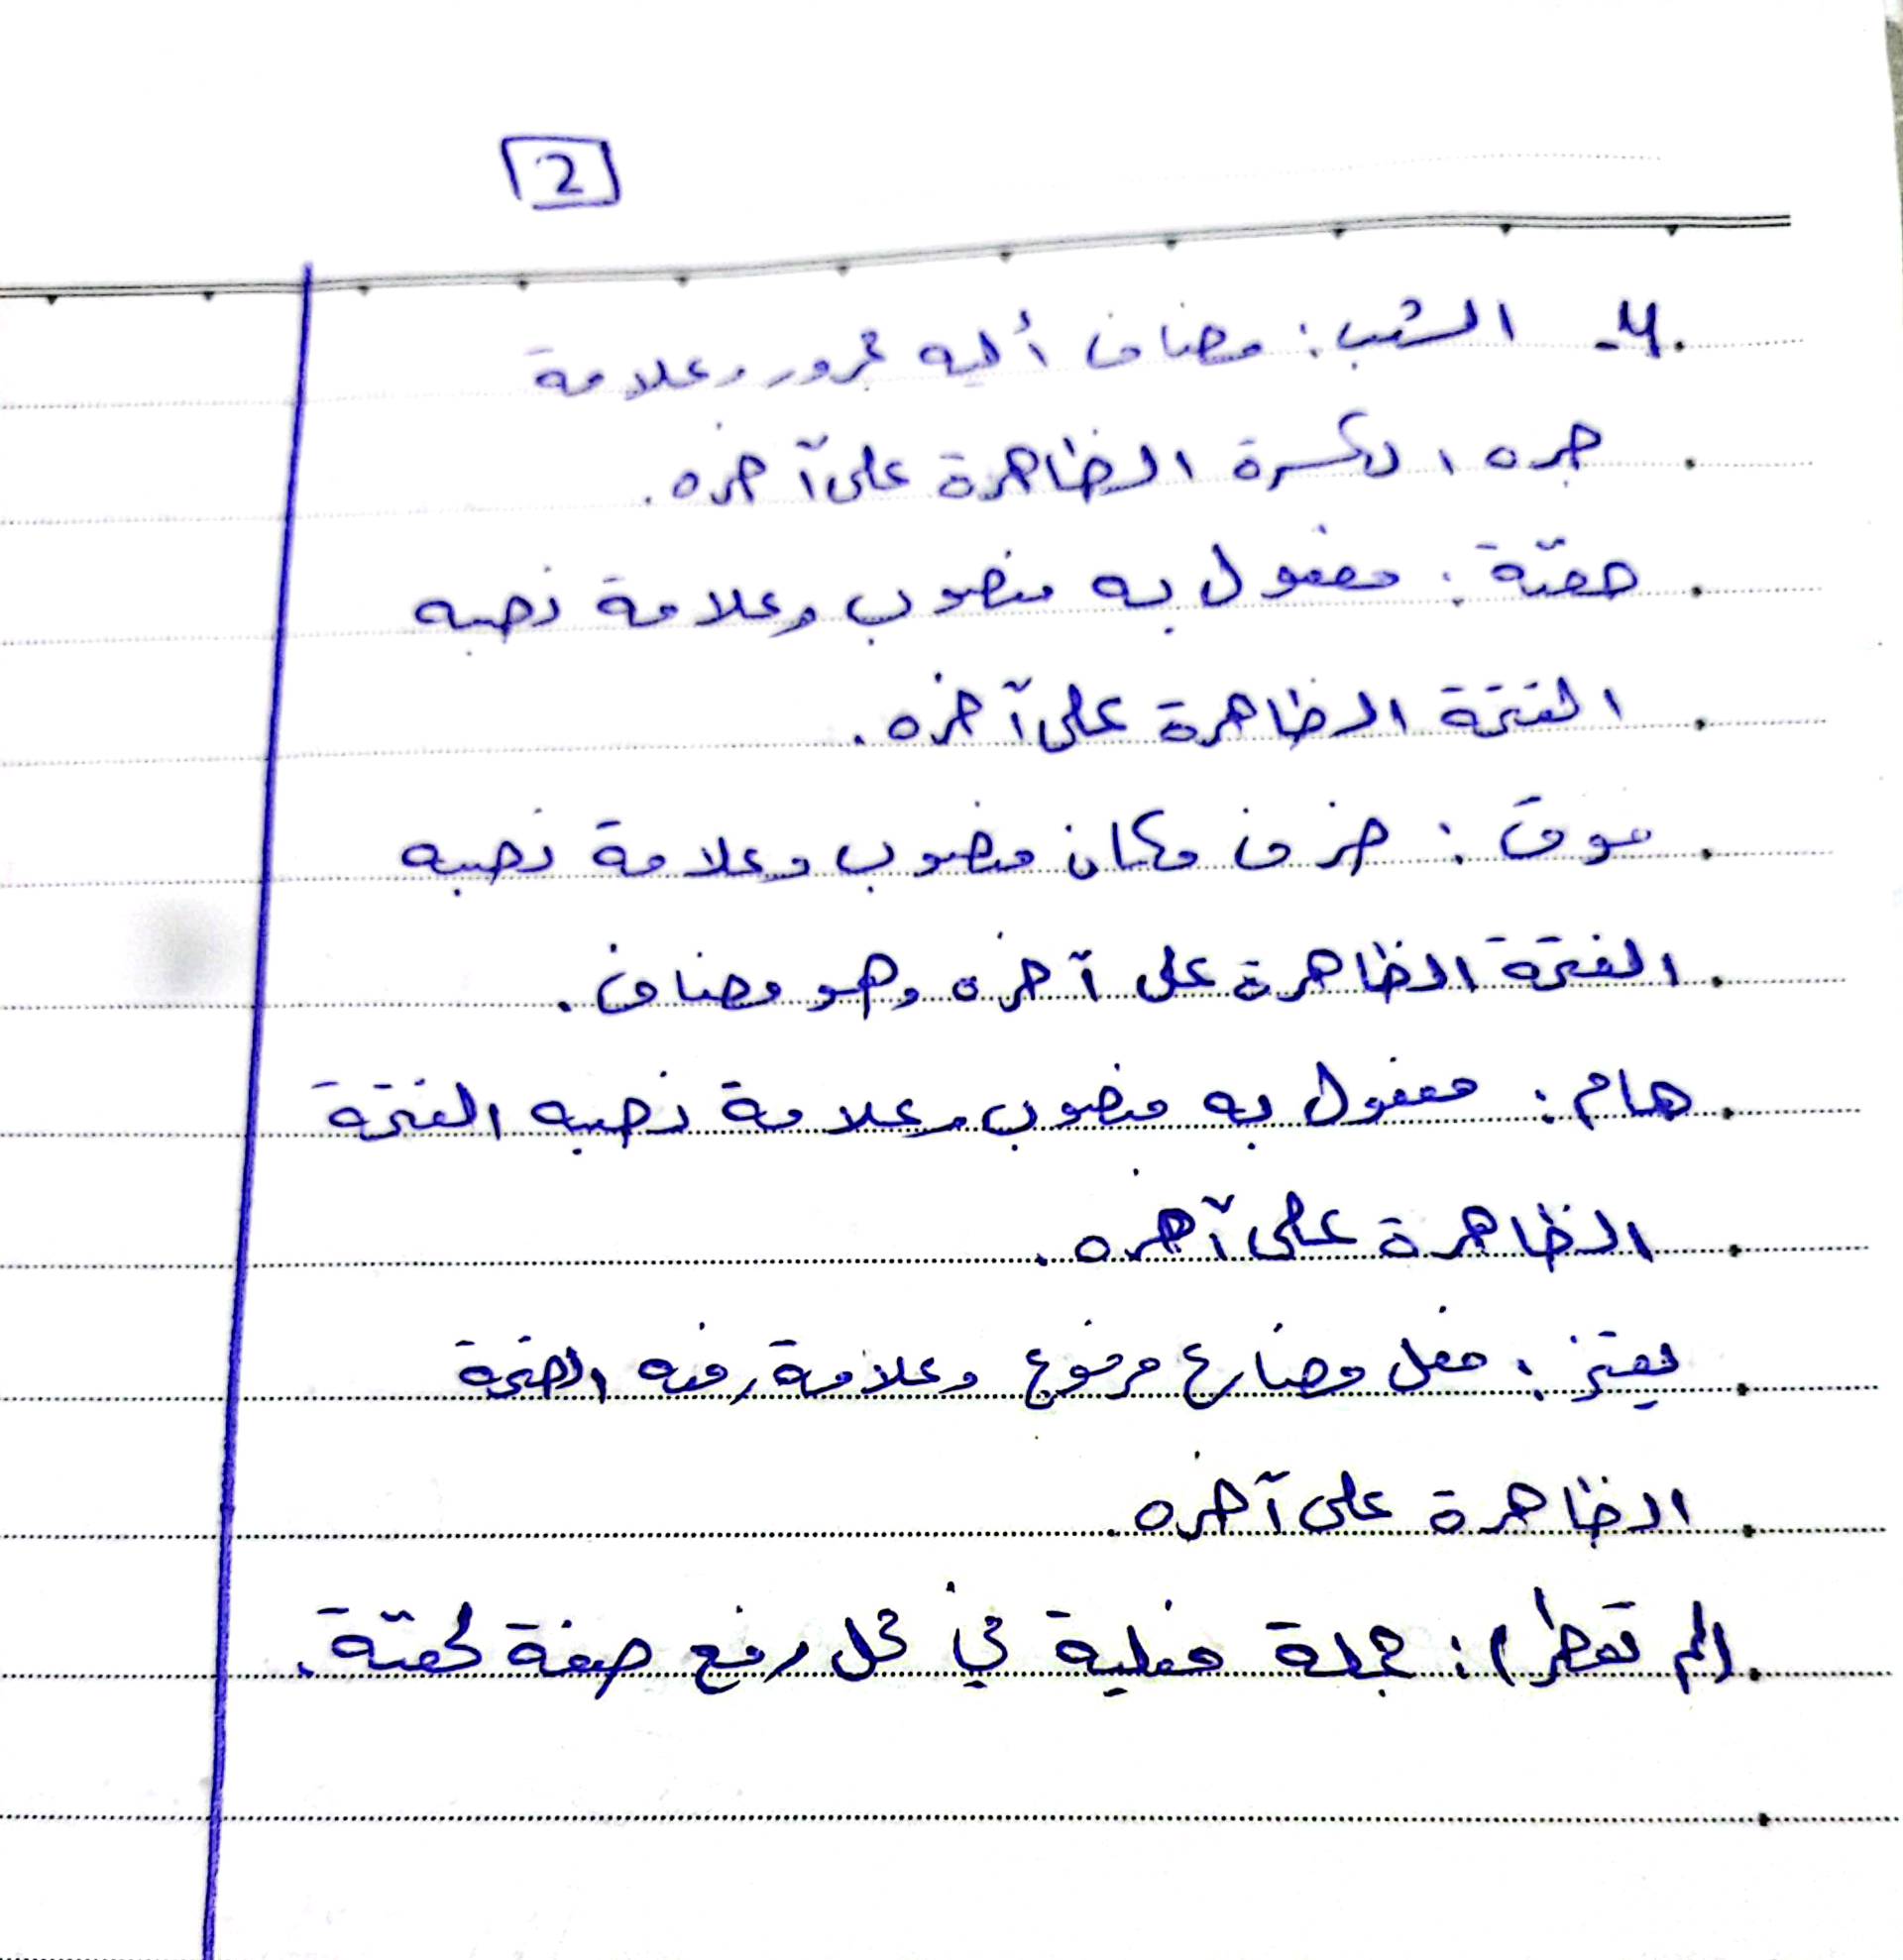 2
4- الشعب: مضاف أليه مجرور وعلامة
جره الكسرة الظاهرة على آخره.
حقبة: مفعول به منصوب وعلامة نصبه
الفتحة الظاهرة على آخره.
فوق: ظرف مكان منصوب وعلامة نصبه
الفتحة الظاهرة على آخره وهو مضاف.
هام: مفعول به منصوب وعلامة نصبه الفتحة
الظاهرة على آخره.
يعتز: فعل مضارع مرفوع وعلامة رفعه الضمة
الظاهرة على آخره
(لم تقطر): جملة فعلية في محل رفع صفة